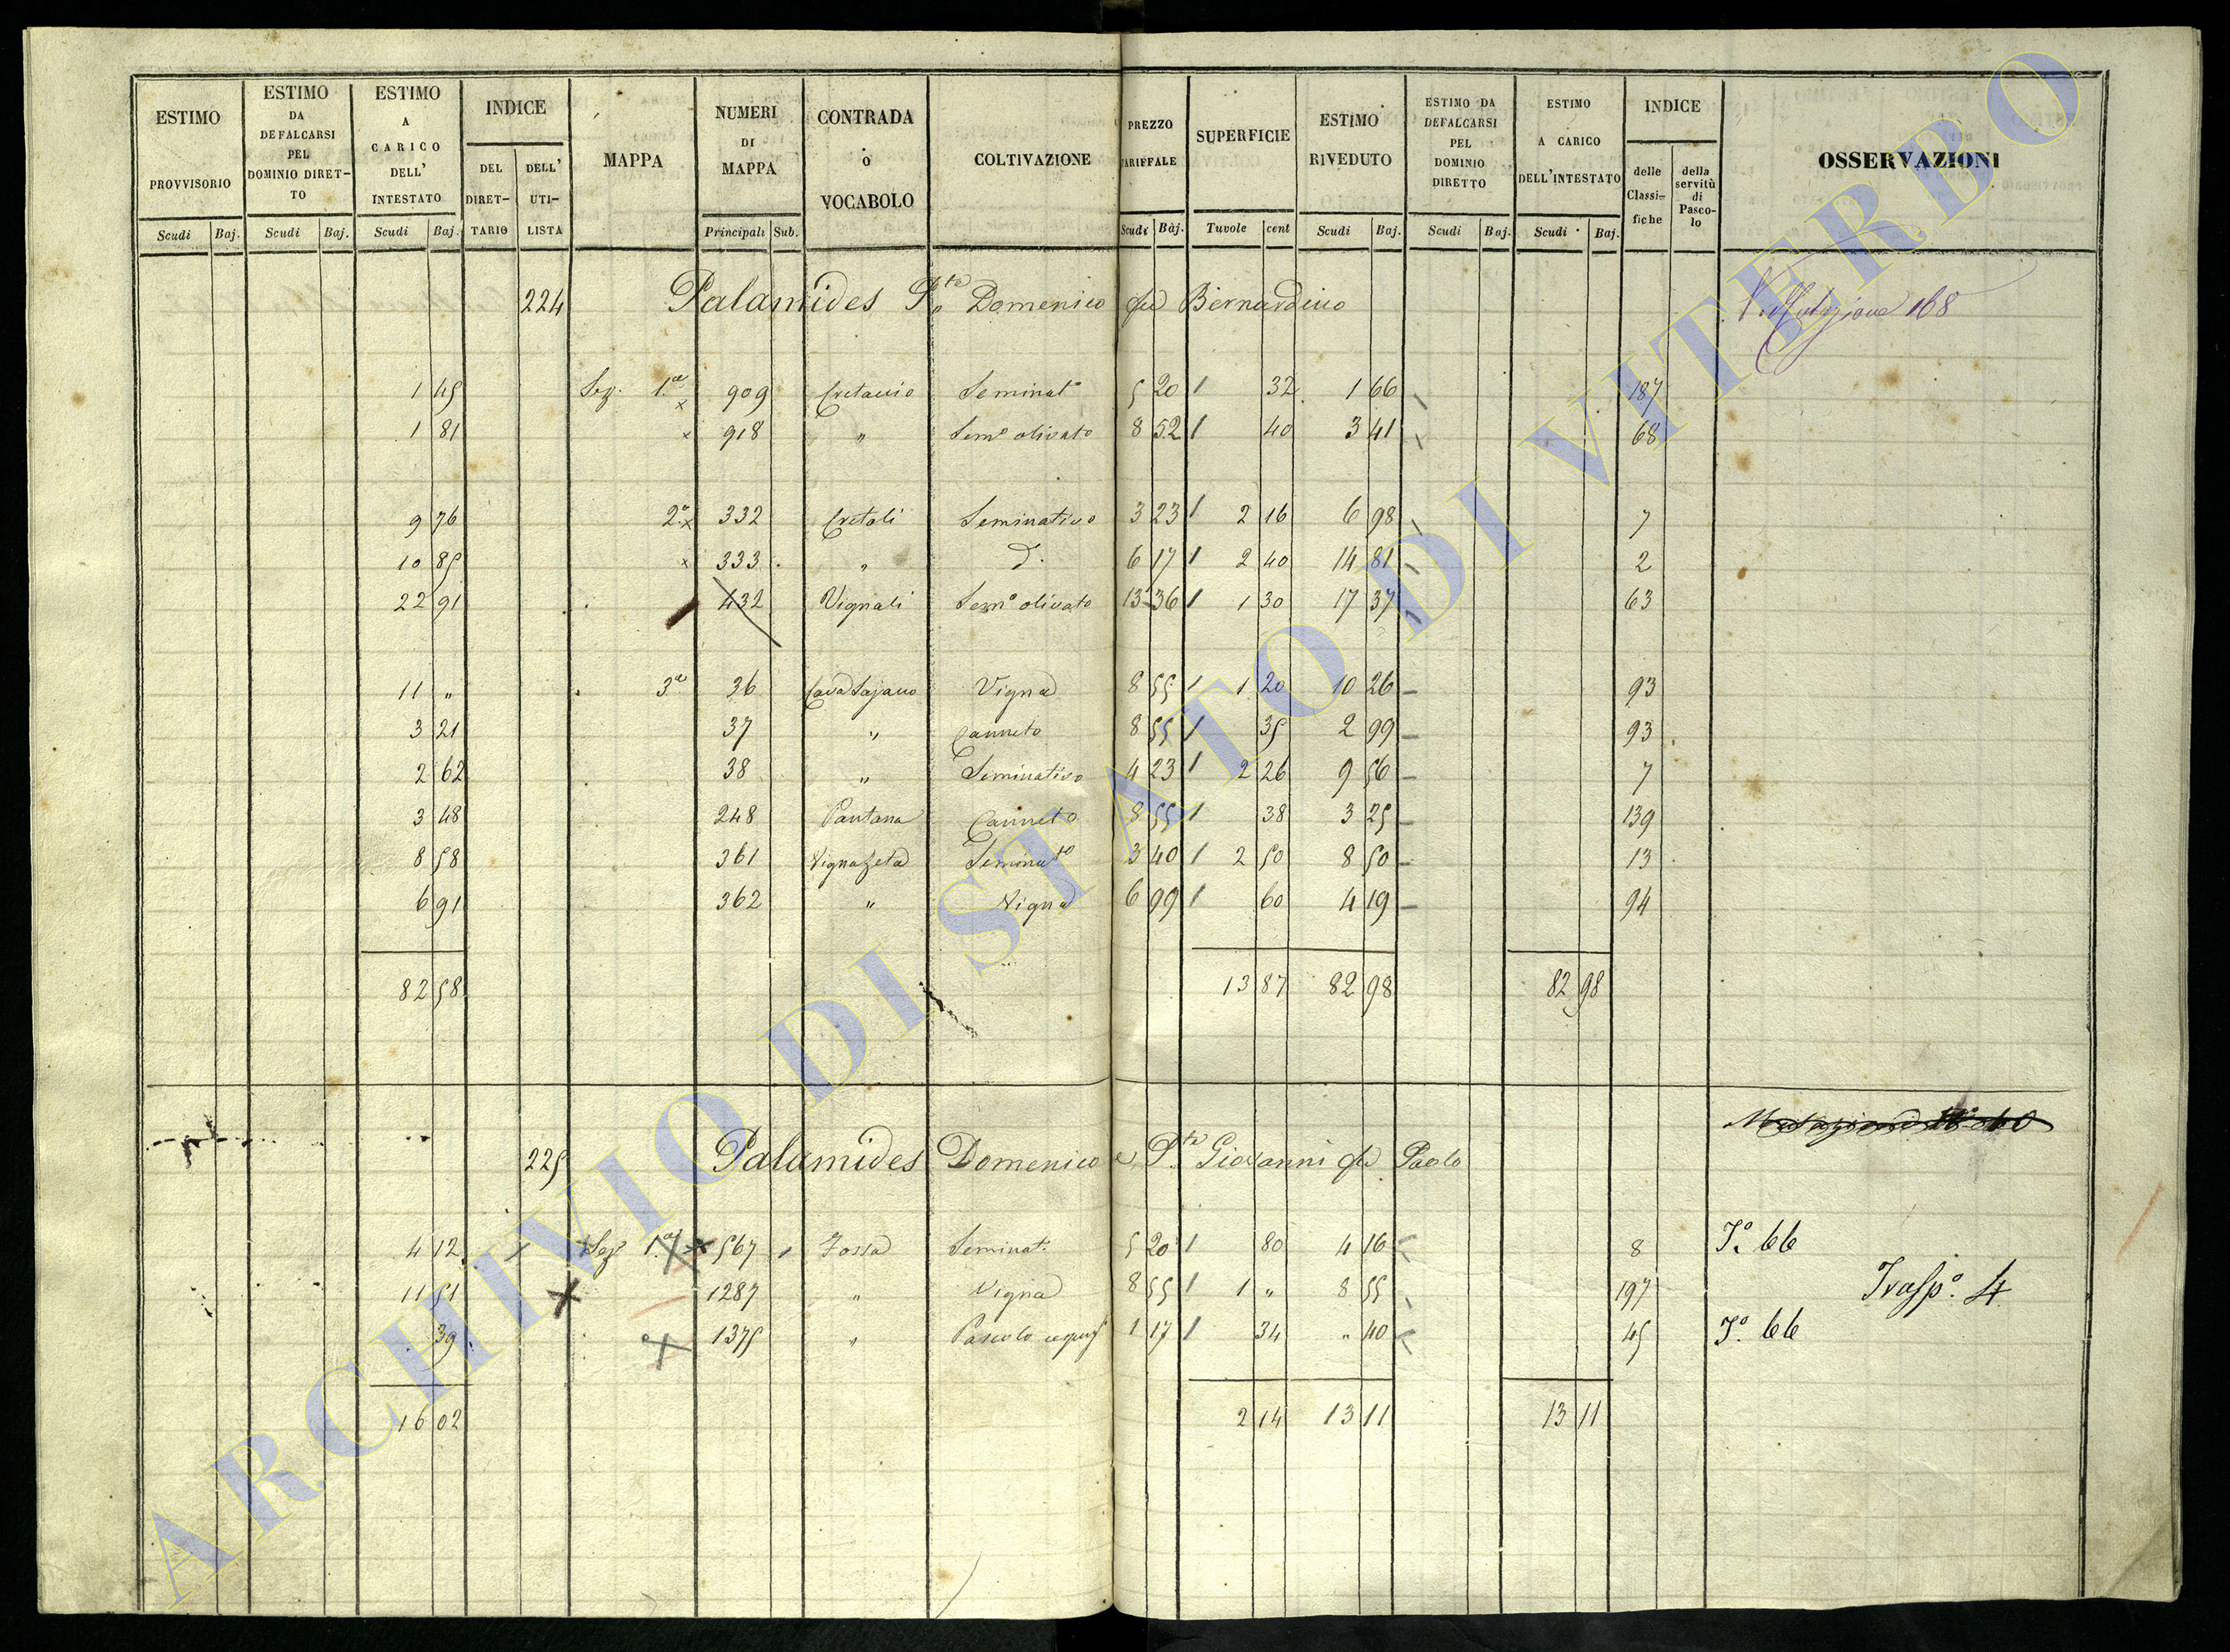 ESTIMO PROVVISORIO Scudi Baj.
ESTIMO DA DEFALCARSI PEL DOMINIO DIRET-TO Scudi Baj.
ESTIMO A CARICO DELL' INTESTATO Scudi Baj.
INDICE DEL DIRET-TARIO DELL' UTI-LISTA
MAPPA
NUMERI DI MAPPA Principali Sub.
CONTRADA o VOCABOLO
COLTIVAZIONE
PREZZO TARIFFALE Scudi Baj.
SUPERFICIE Tavole cent
ESTIMO RIVEDUTO Scudi Baj.
ESTIMO DA DEFALCARSI PEL DOMINIO DIRETTO Scudi Baj.
ESTIMO A CARICO DELL'INTESTATO Scudi Baj.
INDICE delle Classi-fiche della servitù di Pasco-lo
OSSERVAZIONI
224 Palamides P.te Domenico fu Bernardino V. Mutazione 168
1 45 Sez. 1.a 909 Cretaccio Seminat.o 5 20 1 32 1 66 187
1 81 918 " Sem.o olivato 8 52 1 40 3 41 68
9 76 2.a 332 Cretali Seminativo 3 23 1 2 16 6 98 7
10 85 333 " d.o 6 17 1 2 40 14 81 2
22 91 432 Vignali Sem.o olivato 13 36 1 1 30 17 37 63
11 " 3.a 36 Cava Sajano Vigna 8 55 1 1 20 10 26 93
3 21 37 " Canneto 8 55 1 35 2 99 93
2 62 38 " Seminativo 4 23 1 2 26 9 56 7
3 48 248 Pantana Canneto 8 55 1 38 3 25 139
8 58 361 Vignazeta Seminat.o 3 40 1 2 50 8 50 13
6 91 362 " Vigna 6 99 1 60 4 19 94
82 58 13 87 82 98 82 98
225 Palamides Domenico e P.te Giovanni fu Paolo
4 12 Sez. 1.a 567 Fossa Seminat. 5 20 1 80 4 16 8 T.o 66
11 51 1287 " Vigna 8 55 1 1 " 8 55 197 Trasp.o 4
39 1375 " Pascolo 1 17 1 34 " 40 45 T.o 66
16 02 2 14 13 11 13 11
ARCHIVIO DI STATO DI VITERBO